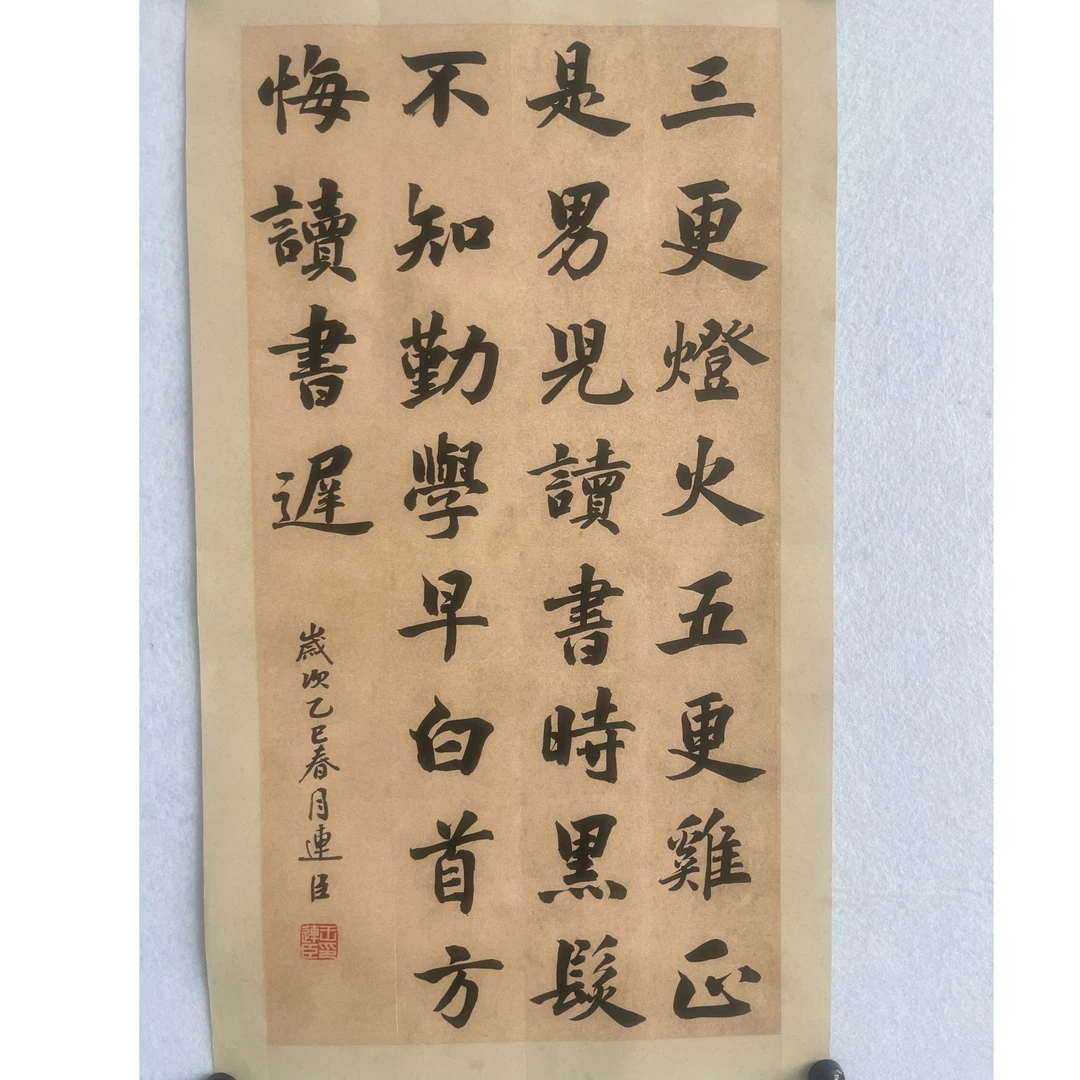 三更燈火五更雞正
是男児讀書時黑髮
不知勤學早白首方
悔讀書遲
歲次乙巳春月連臣
王印連臣